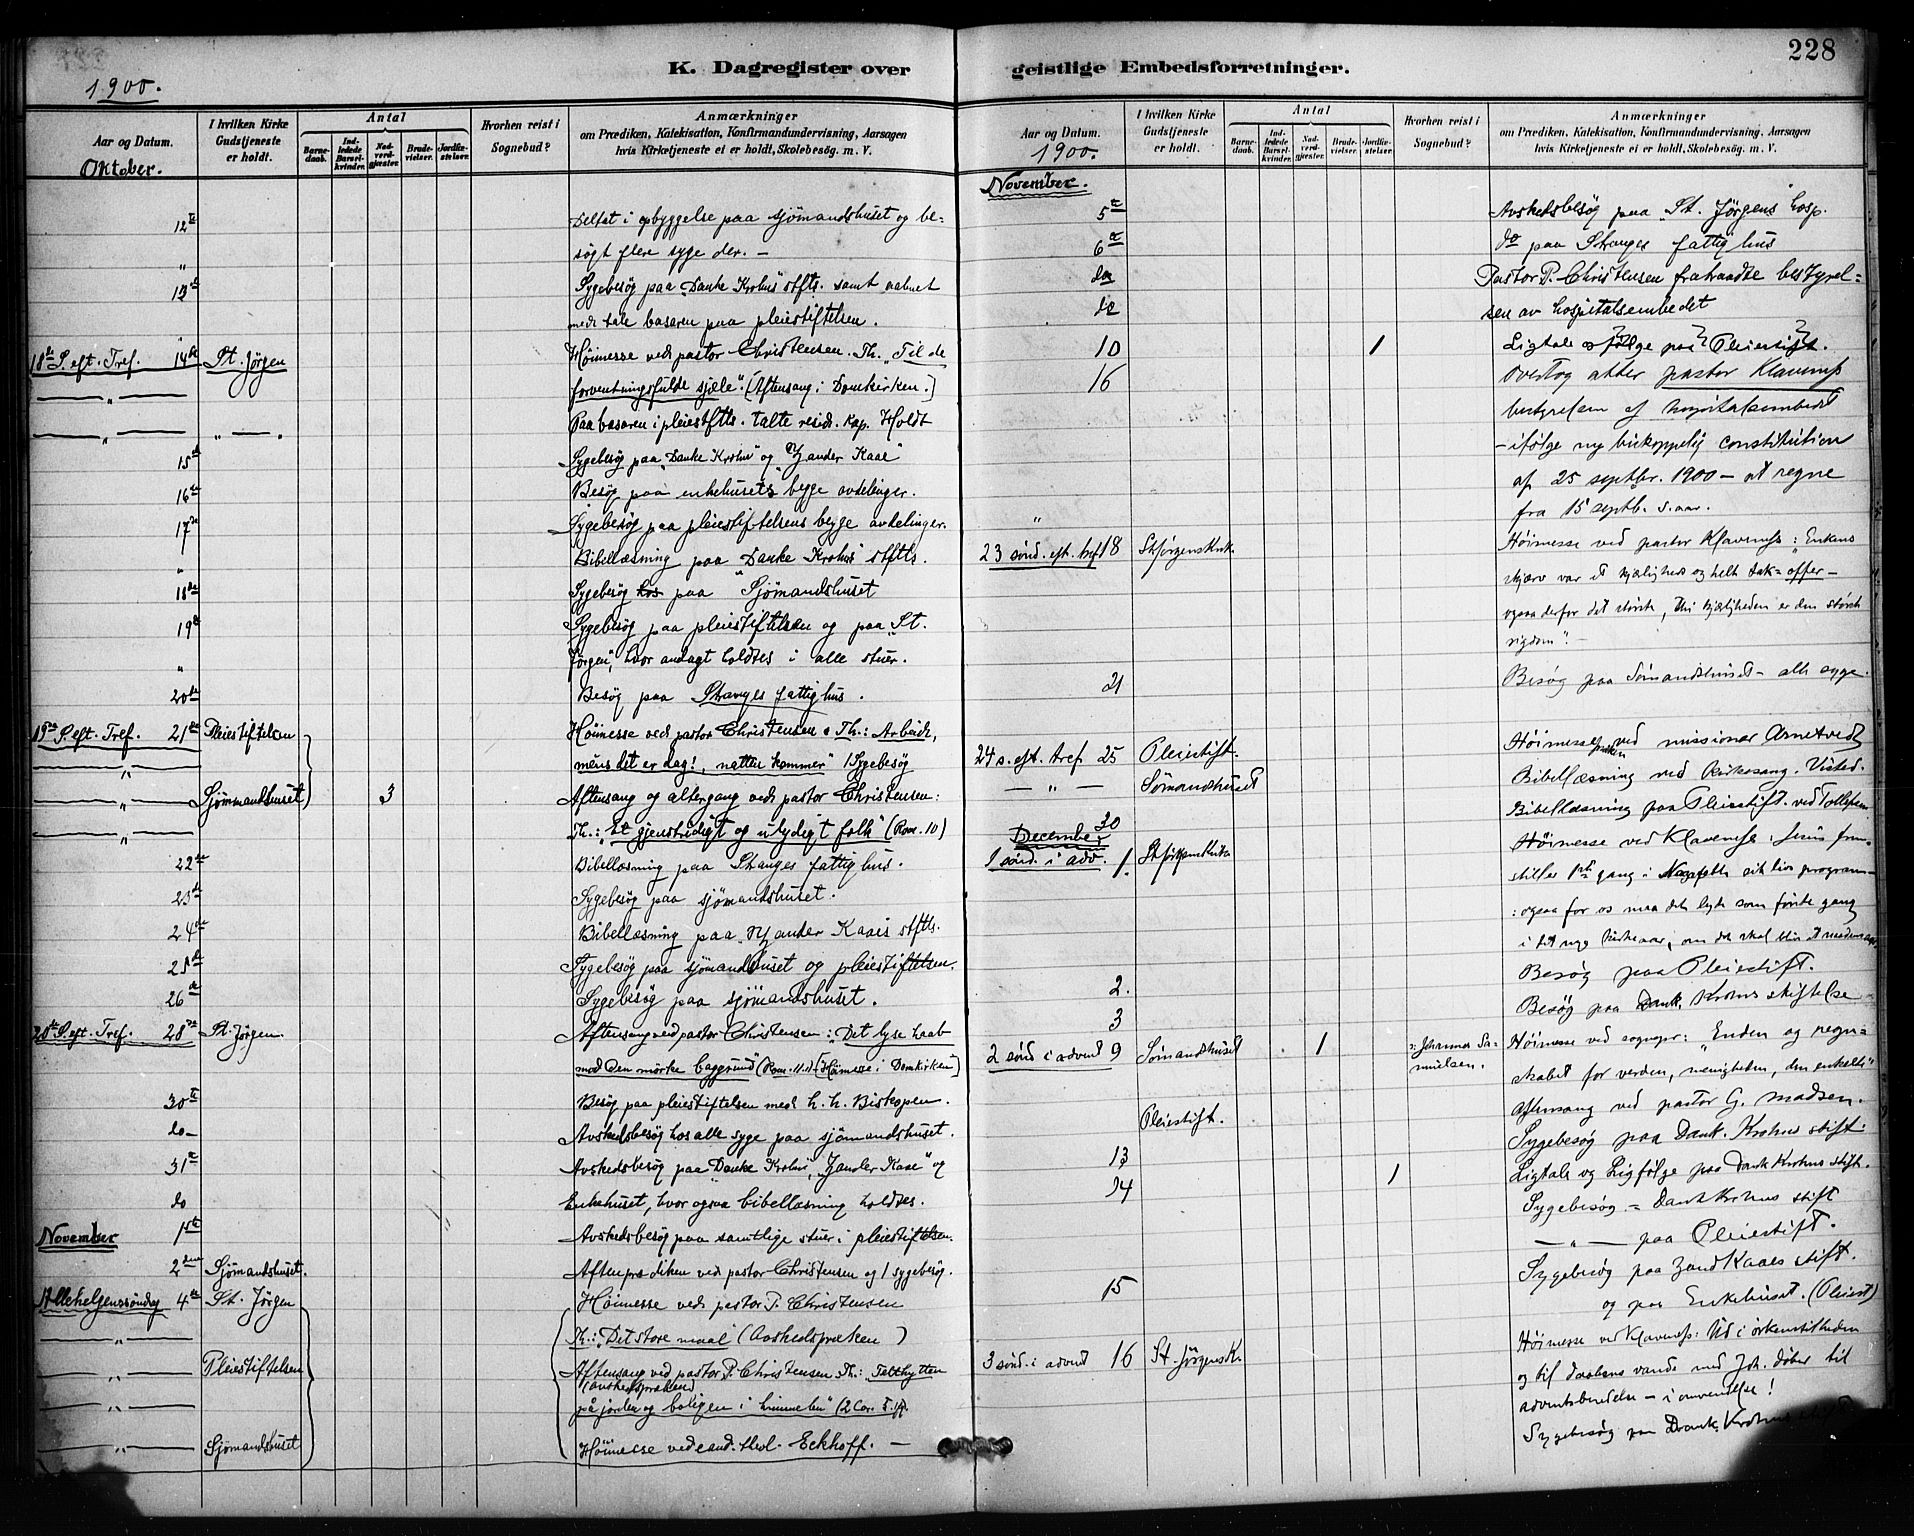 228
K. Dagregister over geistlige Embedsforretninger.
1900.
Aar og Datum.
I hvilken Kirke Gudstjeneste er holdt.
Antal
Barnedaab.
Indledede Barselkvinder.
Nadverdgjester.
Brudevielser.
Jordfæstelser.
Hvorhen reist i Sognebud?
Anmærkninger
om Prædiken, Katekisation, Konfirmandundervisning, Aarsagen
hvis Kirketjeneste ei er holdt, Skolebesøg. m. V.
Oktober.
12te Deltat i opbyggelse paa sjømandshuset og be-
" søgt flere syge der. —
13de Sygebesøg paa "Danke Krohns stfts. samt aabnet
med tale basaren paa pleiestiftelsen.
18de S. eft. Tref. 14de St. Jørgen Høimesse ved pastor Christensen. Th. "Til de
— " — forventningsfulde sjæle". (Aftensang i Domkirken.)
— " — " — " Paa basaren i pleiestfts. talte resid. kap. Holdt
15de Sygebesøg paa "Danke Krohn" og "Zander Kaae"
16de Besøg paa enkehusets begge avdelinger.
17de Sygebesøg paa pleiestiftelsens begge avdelinger.
" Bibellæsning paa Danke Krohns stfts.
18de Sygebesøg hos paa "Sjømandshuset
19de Sygebesøg paa pleiestiftelsen og paa "St.
" Jørgen", hvor andagt holdtes i alle stuer.
20de Besøg paa Stranges fattighus.
19de S. eft. Tref. 21de Pleiestiftelsen Høimesse ved pastor Christensen. Th.: Arbeide,
— " — mens det er dag!, natten kommer" 1 Sygebesøg
— " — Sjømandshuset 3 Aftensang og altergang ved pastor Christensen:
— " — Th.: "Et gjenstridigt og ulydigt folk" (Rom. 10)
22de Bibellæsning paa Stranges fattighus.
23de Sygebesøg paa sjømandshuset.
24de Bibellæsning paa "Zander Kaaes stfts.
25de Sygebesøg paa sjømandshuset og pleiestiftelsen.
26de Sygebesøg paa sjømandshuset.
20de S. eft. Tref. 28de St. Jørgen. Aftensang ved pastor Christensen: "Det lyse haab
mod den mørke baggrund (Rom. 11.) (Høimesse i Domkirken)
30te Besøg paa pleiestiftelsen med h. h. Biskopen.
do— Avskedsbesøg hos alle syge paa sjømandshuset.
31te Avskedsbesøg paa "Danke Krohn", "Zander Kaae" og
do Enkehuset, hvor ogsaa bibellæsning holdtes.
November 1ste Avskedsbesøg paa samtlige stuer i pleiestiftelsen.
2den Sjømandshuset. Aftenprædiken ved pastor Christensen og 1 sygebesøg.
Allehelgenssøndag 4de St. Jørgen Høimesse ved pastor P. Christensen
— " — Th.: Det store maal (Avskedspræken)
— " — Pleiestiftelsen Aftensang ved pastor P. Christensen Th.: Telthytten
(avskedspræken)
— " — på jorden og boligen i himmelen" (2 Cor. 5. ff.
— " — Sjømandshuset Høimesse ved cand. theol. Eckhoff. —
Aar og Datum.
1900.
I hvilken Kirke Gudstjeneste er holdt.
Antal
Barnedaab.
Indledede Barselkvinder.
Nadverdgjester.
Brudevielser.
Jordfæstelser.
Hvorhen reist i Sognebud?
Anmærkninger
om Prædiken, Katekisation, Konfirmandundervisning, Aarsagen
hvis Kirketjeneste ei er holdt, Skolebesøg. m. V.
November.
5te Avskedsbesøg paa "St. Jørgens" hosp.
6te do paa Stranges fattighus
do Pastor P. Christensen fratraadte bestyrel-
do sen av hospitalsembedet
10 1 Ligtale & følge paa Pleiestift.
16 Overtog atter pastor Klaveness
bestyrelsen af hospitalsembedet
— ifølge ny biskoppelig constitution
af 25 septbr. 1900 — at regne
" fra 15 septb. s. aar.
23 sønd. eft. tref 18 St Jørgens Kirk. Høimesse ved pastor Klaveness: "Enkens
skjærv var et kjærligheds og helt tak= offer —
ogsaa derfor det største, thi kjærligheden er den største
rigdom". —
21 Besøg paa Sømandshuset — alle syge.
24 s. eft. tref 25 Pleiestift. Høimesse ved missionær Arnetvedt
— " — Sømandshuset Bibellæsning ved Kirkesang. Visted.
30 Bibellæsning paa Pleiestift. ved Tollefsen
December
1 sønd. i adv. 1. St Jørgens Kirke Høimesse ved Klaveness: Jesus frem-
stiller 1ste gang i Nazareth sit livs program —
: ogsaa for os maa det lyde som første gang
i det nye kirkeaar, om det skal blive et
Besøg paa Pleiestift.
2. Besøg paa Dank. Krohns stiftelse
3
2 sønd i advent 9 Sømandshuset 1 : Johannes Sa-
muelsen. Høimesse ved sognepr: "Enden og regn=
skabet for verden, menigheden, den enkelte"
Pleiestift. Aftensang ved pastor G. Madsen.
Sygebesøg paa Dank. Krohns stift:
13 1 Ligtale og Ligfølge paa Dank Krohns stift.
14 Sygebesøg = Dank Krohns stift
— " — paa Pleiestift.
Sygebesøg paa Zand Kaaes stift.
15 og paa Enkehuset. (Pleiest)
3 sønd. i advent 16 St. Jørgens K. Høimesse ved Klaveness: Ud i ørkenstilheden
og til daabens vande med Joh. døber til
adventsberedelse — i omvendelse!
Sygebesøg paa Dank. Krohns